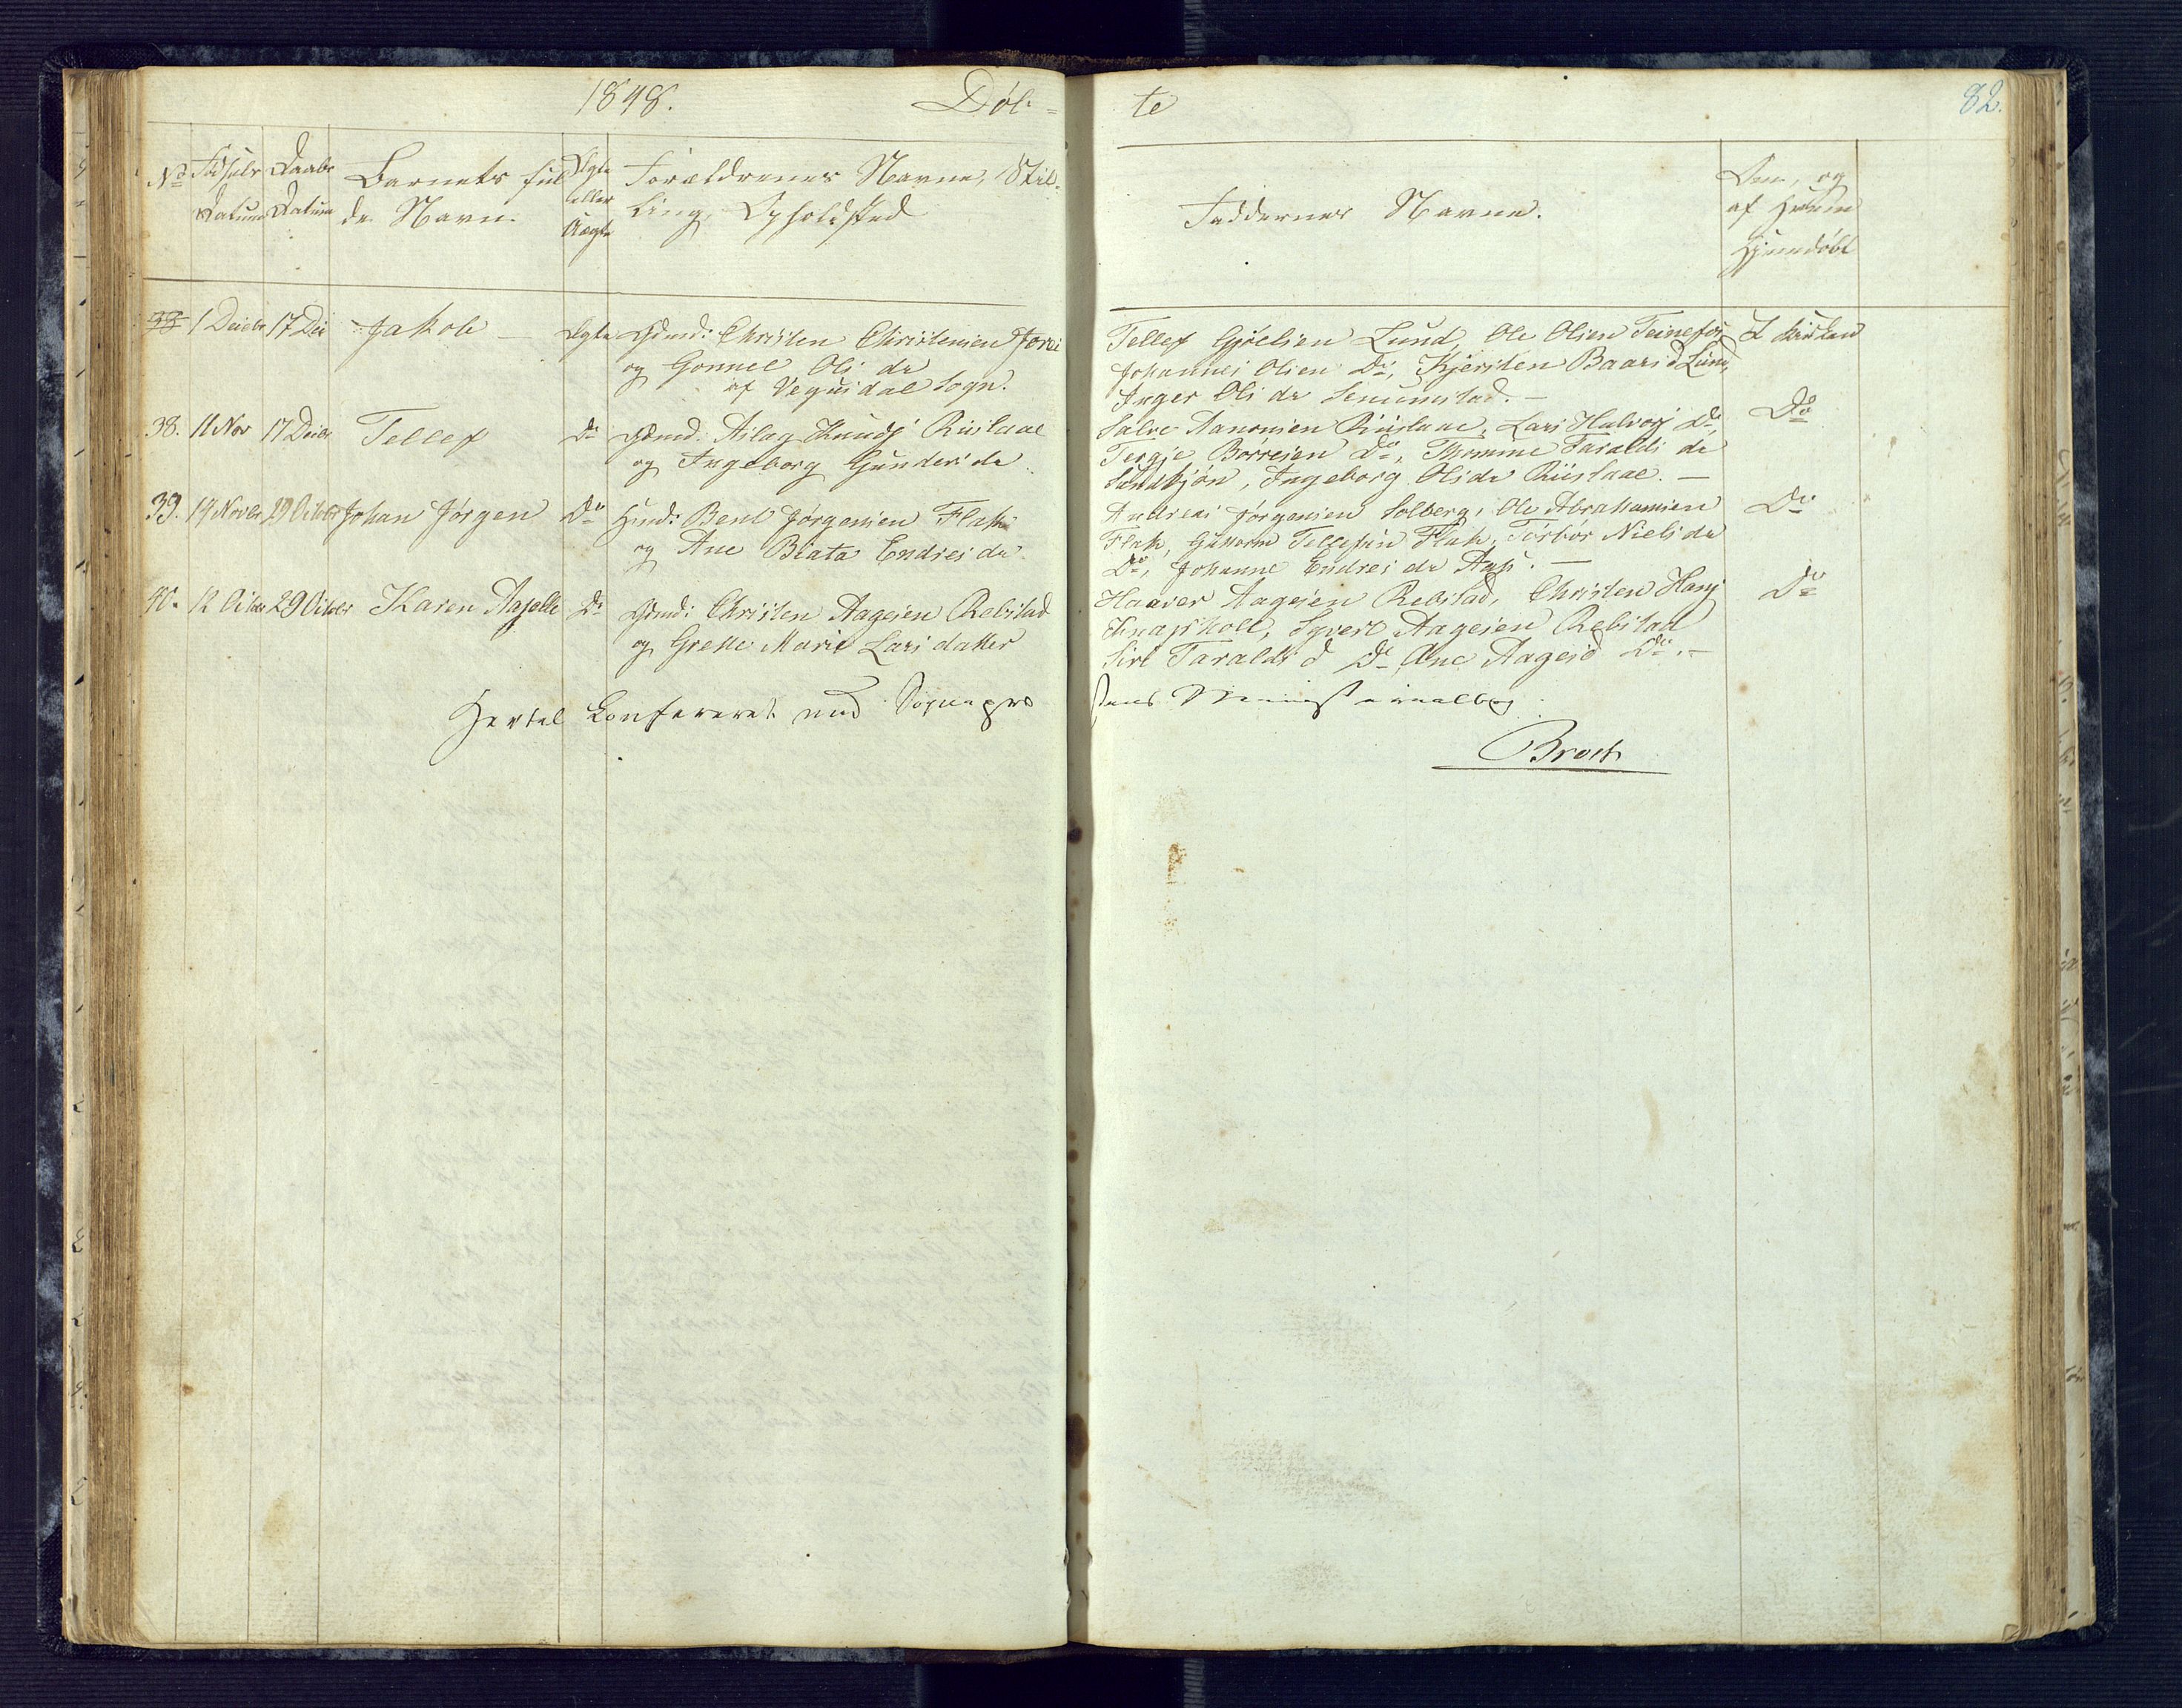 1848.
Døb=
te
82.
No
Fødsels Datum
Daabs Datum
Barnets fulde Navn
Ægte eller Uægte
Forældrenes Navne, Stilling, Opholdsted
Faddernes Navne.
Om, og af Hvem Hjemdøbt
38 1 Decbr 17 Dec Jakob Ægte Gdmd: Christen Christensen
og Gonnel Olsdr
af Vegusdal Sogn.
Tellef Gjselsen Lund, Ole Olsen
Johannes Olsen Do, Kjersten Baarsd Lund,
Inger Olsdr
I kirken
38. 11 Nov 17 Decbr Tellef Do Gdmd. Aslag Knuds Riislaae
og Ingeborg Gundersdr
Salve Aanonsen Riislaae, Lars Halvors Do,
Tergje Børresen Do, Thomine Taraldsdr
Ingeborg Olsdr Riislaae. —
Do
39. 19 Novbr 29 Octobr Johan Jørgen Do Hmd: Bent Jørgensen Flak
og Ane Beata Endresdr
Andreas Jørgensen Solberg, Ole Abrahamsen
Flak, Guttorm Tellefsen Flak, Torbor Nielsdr
Do, Johanne Endresdr Aas. —
Do
40. 12 Octbr 29 Octobr Karen Aaselle Do Gdmd: Christen Aagesen Rebstad
og Grethe Marie Larsdatter
Haaver Aagesen Rebstad, Christen Hans
Knapskott, Syvert Aagesen Rebstad
Siri Taraldsd Do Ane Aagesd Do. —
Do
Hertel Confereret med Sognepræ
stens Ministerialbog
Broch